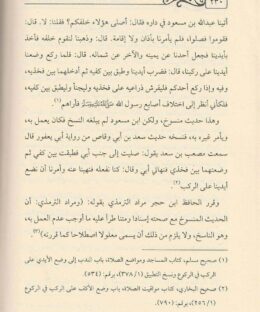 ٢٣٠
أتينا عبدالله بن مسعود في داره فقال: أصلى هؤلاء خلفكم؟ فقلنا: لا. قال:
فقوموا فصلوا، فلم يأمرنا بأذان ولا إقامة. قال: وذهبنا لنقوم خلفه فأخذ
بأيدينا فجعل أحدنا عن يمينه والآخر عن شماله. قال: فلما ركع وضعنا
أيدينا على ركبنا، قال: فضرب أيدينا وطبق بين كفيه ثم أدخلهما بين فخذيه،
وفيه وإذا ركع أحدكم فليفرش ذراعيه على فخذيه وليجنأ وليطبق بين كفيه،
فكأني أنظر إلى اختلاف أصابع رسول الله ﷺ فأراهم(١).
وهذا حديث منسوخ، ولكن ابن مسعود لم يبلغه النسخ فكان يعمل به،
ويأمر غيره به، فنسخه حديث سعد بن أبي وقاص من رواية أبي يعفور قال
سمعت مصعب بن سعد يقول: صليت إلى جنب أبي فطبقت بين كفي ثم
وضعتهما بين فخذي فنهاني أبي وقال: كنا نفعله فنهينا عنه وأمرنا أن نضع
أيدينا على الركب(٢).
وقرر الحافظ ابن حجر مراد الترمذي، بقوله: (ومراد الترمذي: أن
الحديث المنسوخ مع صحته إسنادا ومتنا طرأ عليه ما أوجب عدم العمل به،
وهو الناسخ، ولا يلزم من ذلك أن يسمى معلولا اصطلاحا كما قررته)(٣).
(١) صحيح مسلم، كتاب المساجد ومواضع الصلاة، باب الندب إلى وضع الأيدي على
الركب في الركوع ونسخ التطبيق (٣٧٨/١)، برقم: (٥٣٤)
(٢) صحيح البخاري، كتاب مواقيت الصلاة، باب وضع الأكف على الركب في الركوع
(٢٥٦/١)، برقم: (٧٩٠)